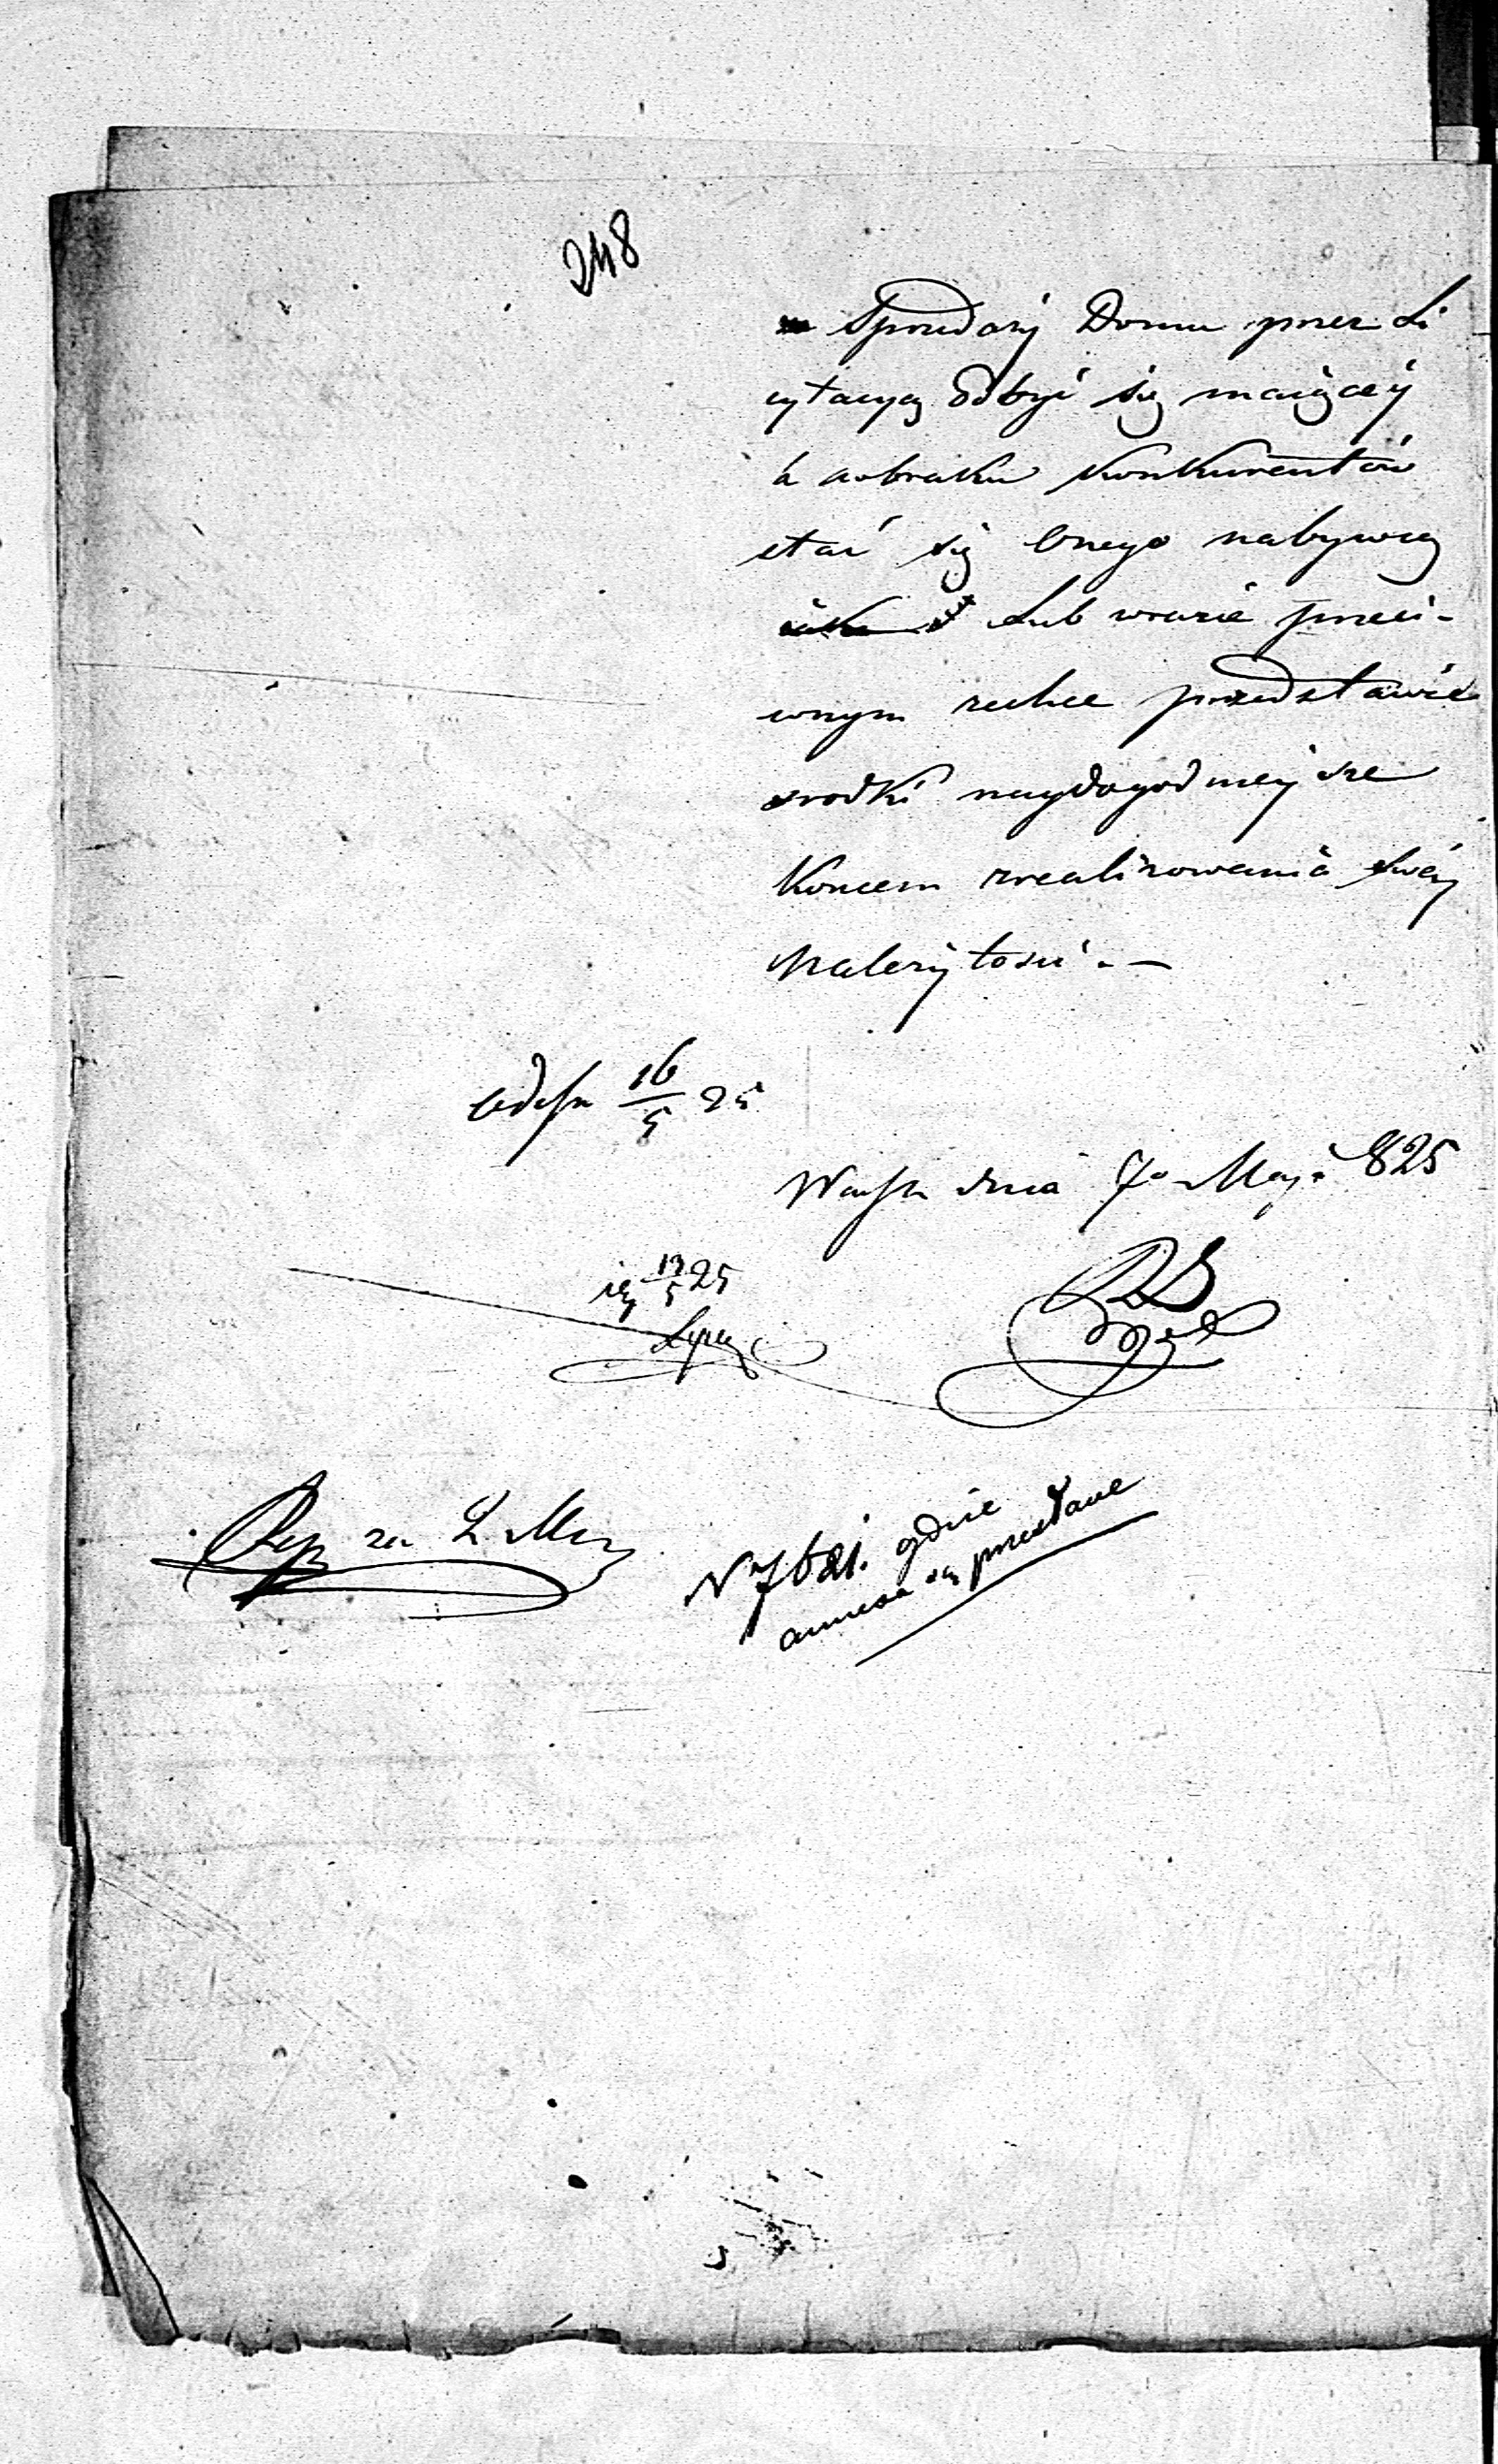 248
Sprzedaży Domu przez Li
cytacyą odbyć się maiącey
a wbraku Konkurentów
stać się onego nabywcą
Lub wrazie przeci-
wnym zechce przedstawić
srodki naydogodnieysze
Koncem zrealizowania swéy
Należytości. —
16/5 25
dnia 7o Maja 825
13/5 25
Rep za L
N 7621. gdzie
annexa są przesłane